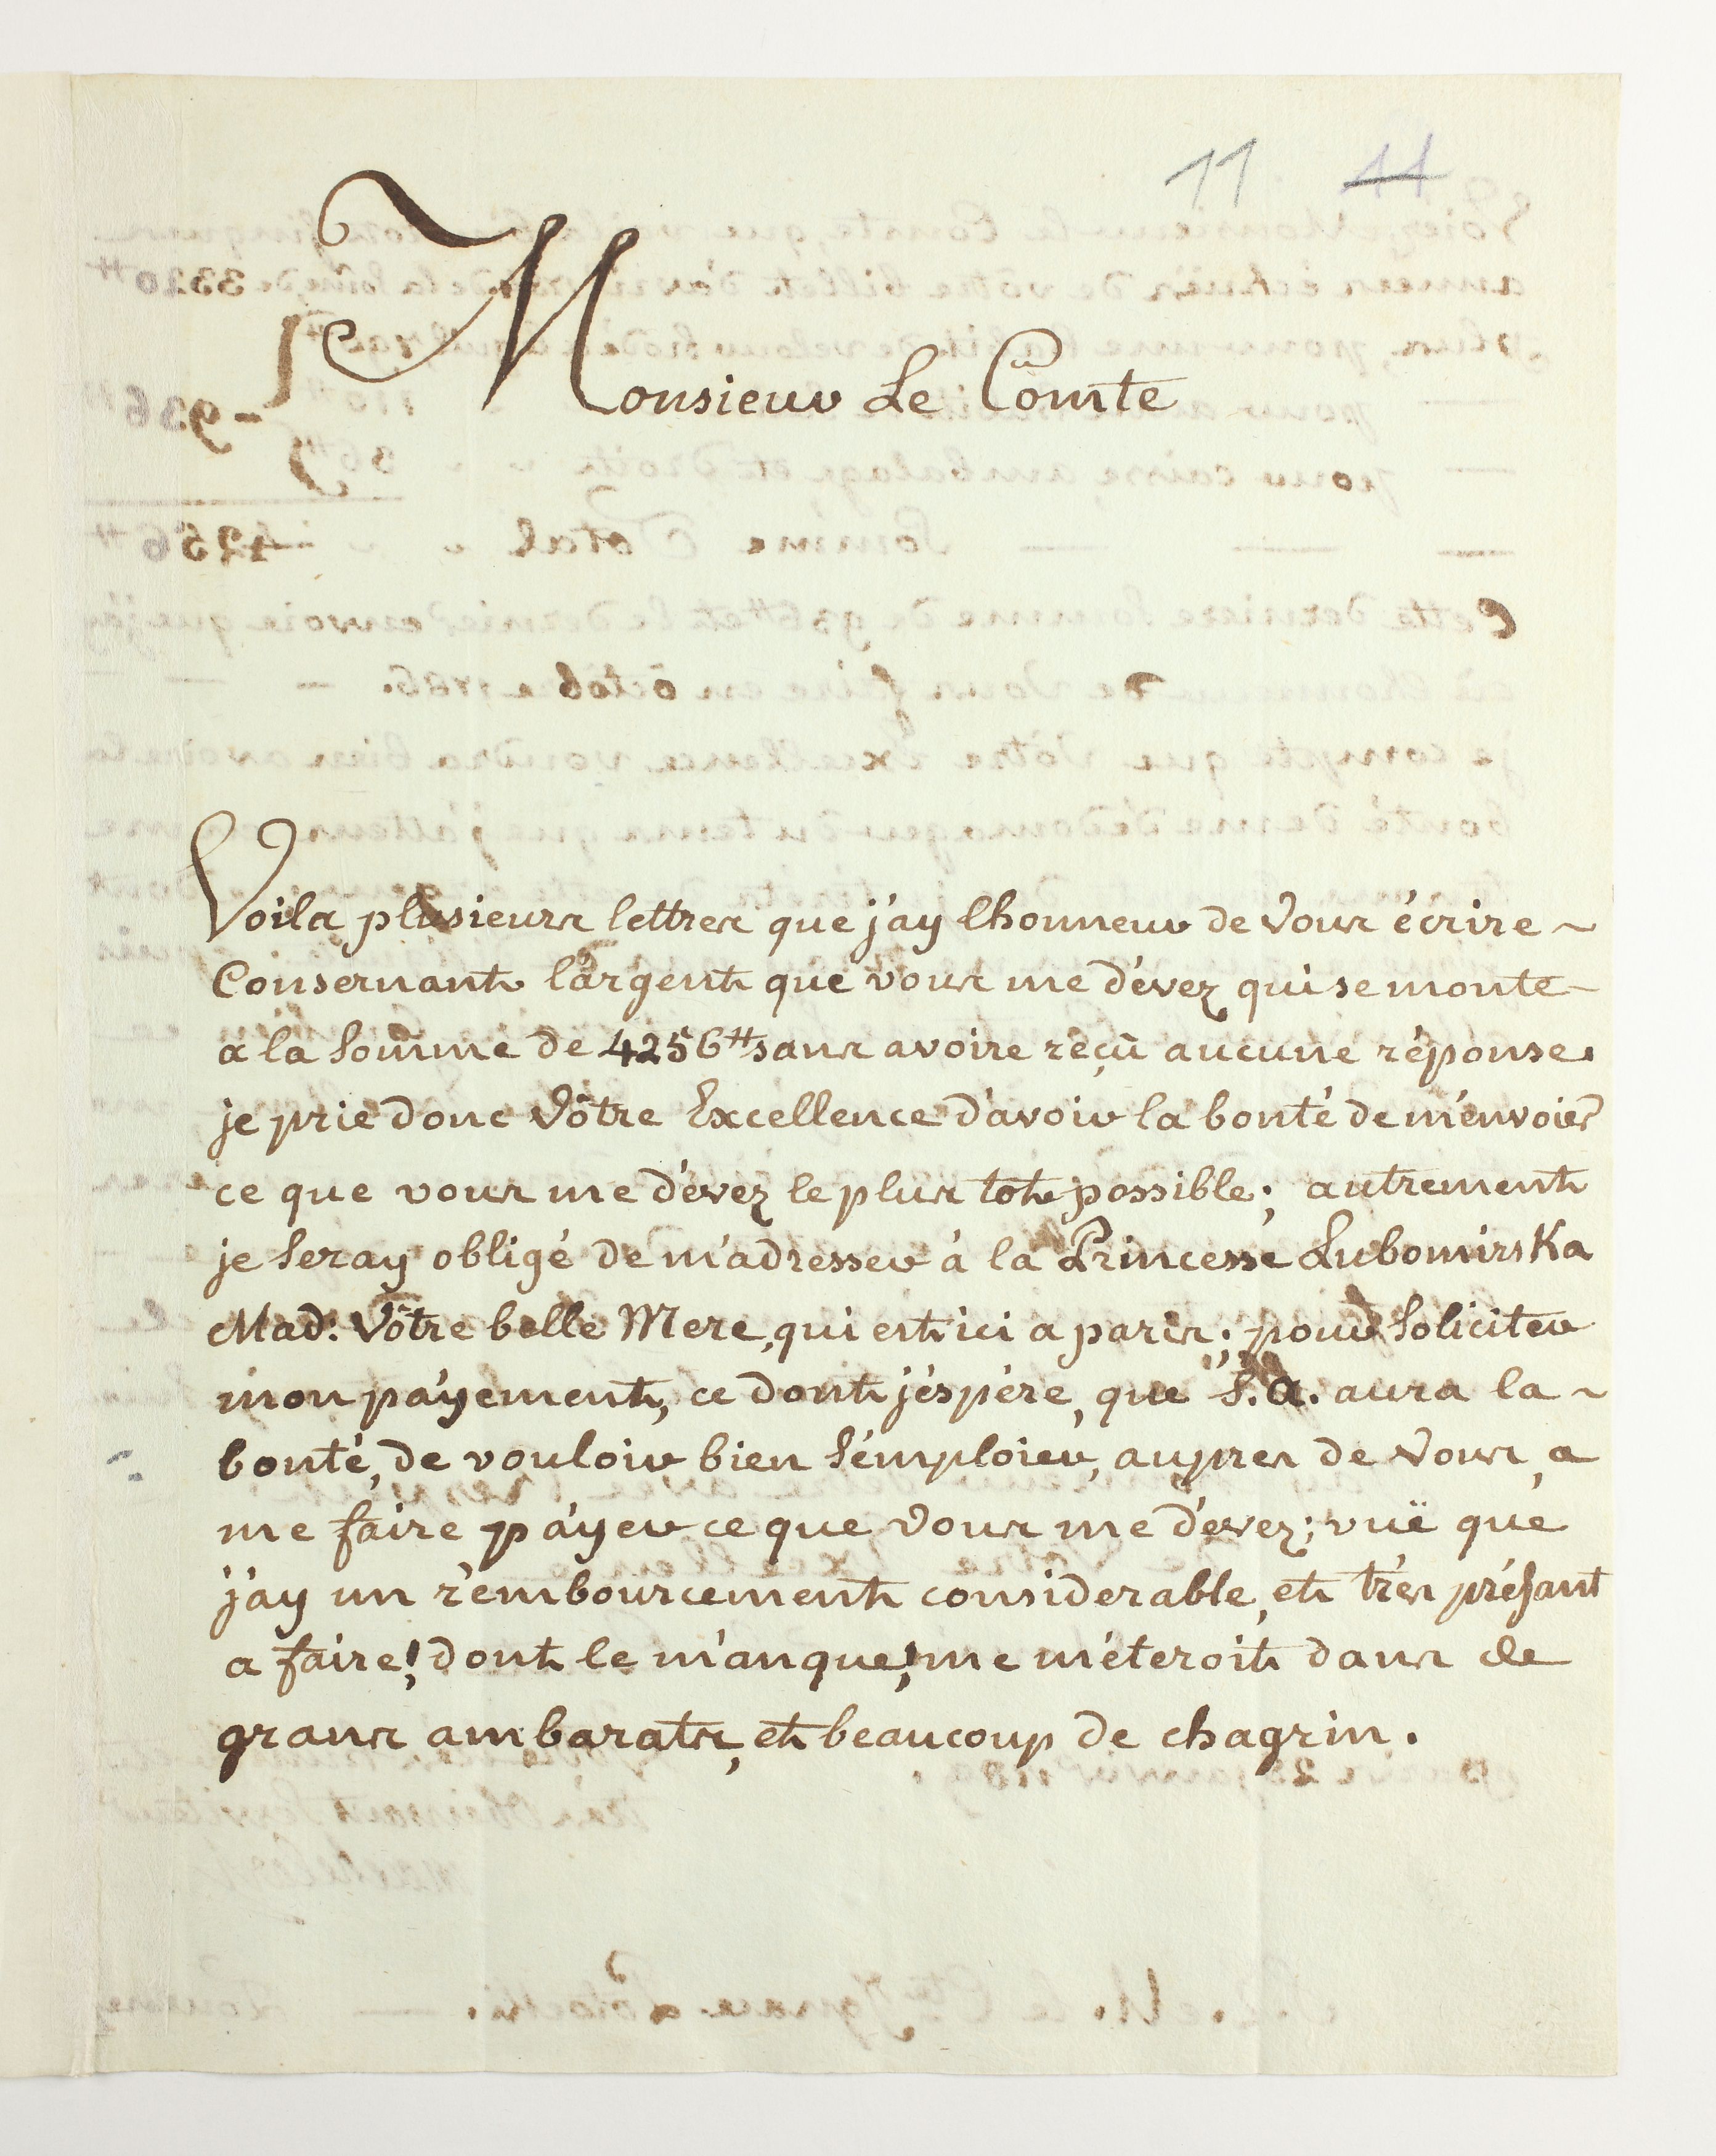 11 11
Monsieur Le Comte
Voila plusieurs lettres que j'ay lhonneur de vous écrire ~
Consernant l'argent que vous me dévez qui se monte
a la somme de 4256# sans avoire réçû aucune réponse.
je prie donc Vôtre Excellence d'avoir la bonté de m'envoier
ce que vous me dévez le plus tot possible; autrement
je seray obligé de m'adresser á la Princesse Lubomirska
Mad: Vôtre belle Mere, qui est ici a paris; pour soliciter
mon páyement, ce dont j'éspére, que S.A. aura la ~
bonté, de vouloir bien s'émploier, aupres de vous, a
me faire páyer ce que vous me dévez; vuë que
j'ay un rémbourcement considerable, et trés présant
a faire! dont le manque! me méteroit dans de
grans ambarats, et beaucoup de chagrin.